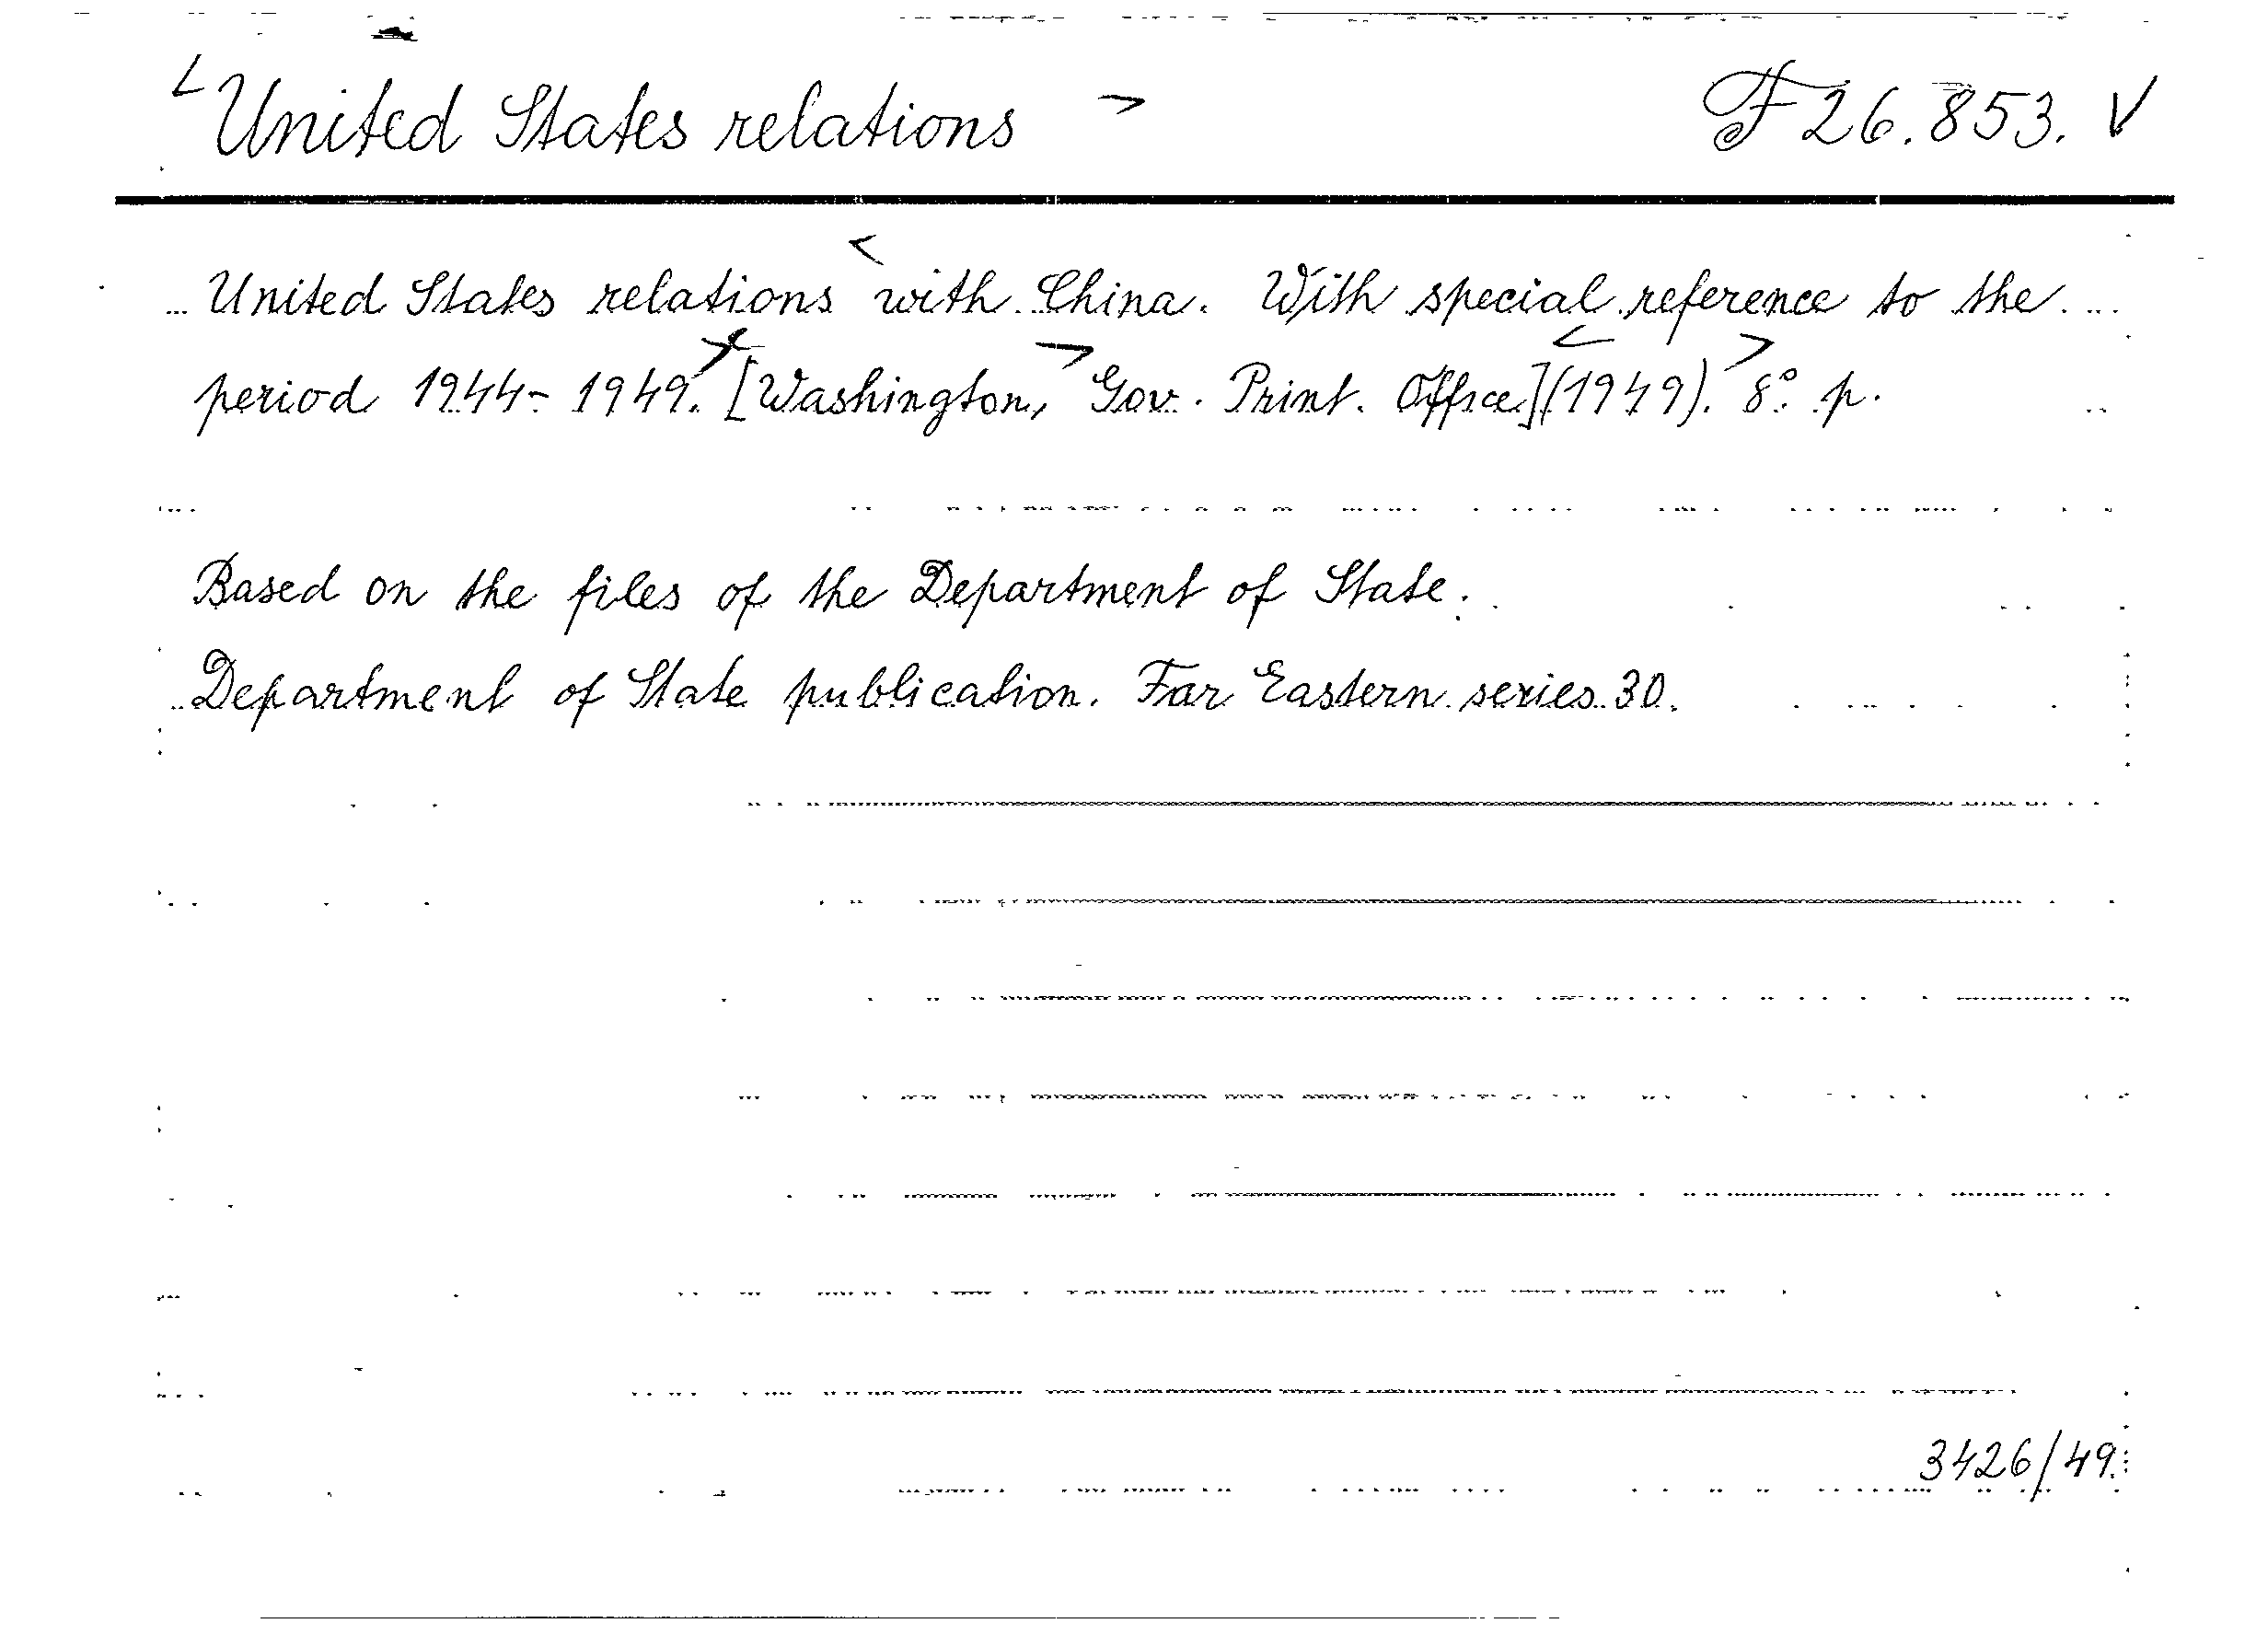 United States relations F 26.853. V
United States relations with China. With special reference to the
period 1944-1949. [Washington, Gov. Print. Office] (1949). 8° p.
Based on the files of the Department of State.
Department of State publication. Far Eastern series 30.
3426/49.